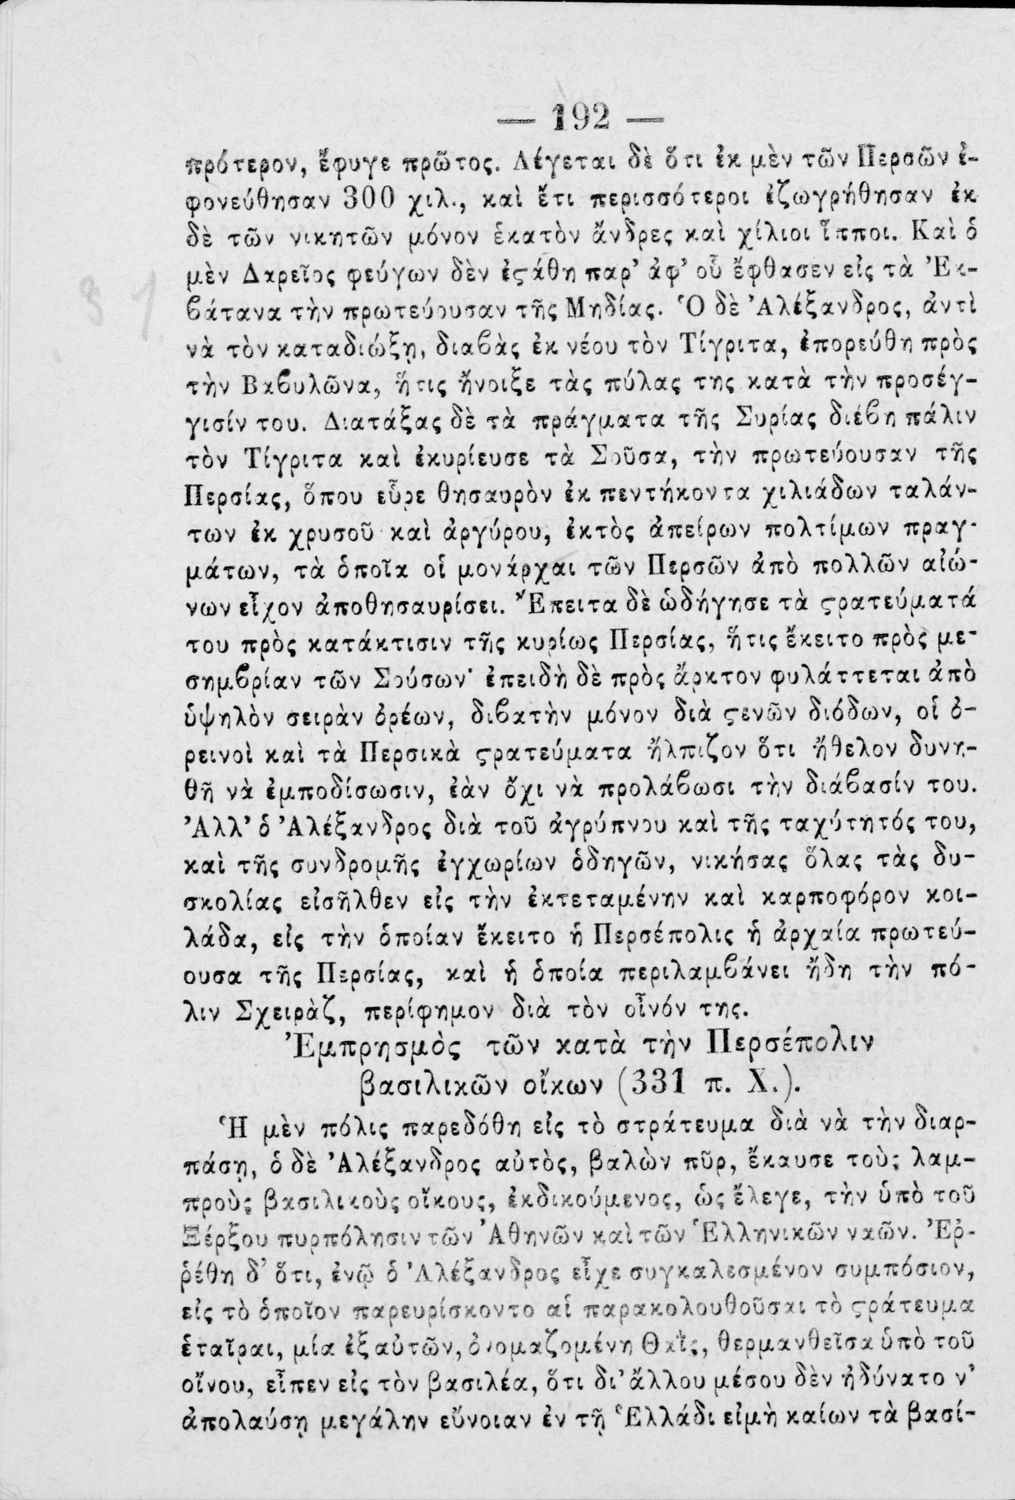 — 192 —
πρότερον, ἔφυγε πρῶτος. Λέγεται δὲ ὅτι ἐκ μὲν τῶν Περσῶν ἐ-
φονεύθησαν 300 χιλ., καὶ ἔτι περισσότεροι ἐζωγρήθησαν ἐκ
δὲ τῶν νικητῶν μόνον ἑκατὸν ἄνδρες καὶ χίλιοι ἵπποι. Καὶ ὁ
μὲν Δαρεῖος φεύγων δὲν ἐϛάθη παρ’ ἀφ’ οὗ ἔφθασεν εἰς τὰ Ἐκ-
ϐάτανα τὴν πρωτεύουσαν τῆς Μηδίας. Ὁ δὲ Ἀλέξανδρος, ἀντὶ
νὰ τὸν καταδιώξῃ, διαϐὰς ἐκ νέου τὸν Τίγριτα, ἐπορεύθη πρὸς
τὴν Βαϐυλῶνα, ἥτις ἤνοιξε τὰς πύλας της κατὰ τὴν προσέγ-
γισίν του. Διατάξας δὲ τὰ πράγματα τῆς Συρίας διέϐη πάλιν
τὸν Τίγριτα καὶ ἐκυρίευσε τὰ Σοῦσα, τὴν πρωτεύουσαν τῆς
Περσίας, ὅπου εὗρε θησαυρὸν ἐκ πεντήκοντα χιλιάδων ταλάν-
των ἐκ χρυσοῦ καὶ ἀργύρου, ἐκτὸς ἀπείρων πολτίμων πραγ-
μάτων, τὰ ὁποῖα οἱ μονάρχαι τῶν Περσῶν ἀπὸ πολλῶν αἰώ-
νων εἶχον ἀποθησαυρίσει. Ἔπειτα δὲ ὡδήγησε τὰ ϛρατεύματά
του πρὸς κατάκτισιν τῆς κυρίως Περσίας, ἥτις ἔκειτο πρὸς με-
σημϐρίαν τῶν Σούσων· ἐπειδὴ δὲ πρὸς ἄρκτον φυλάττεται ἀπὸ
ὑψηλὸν σειρὰν ὀρέων, διϐατὴν μόνον διὰ ϛενῶν διόδων, οἱ ὀ-
ρεινοὶ καὶ τὰ Περσικὰ ϛρατεύματα ἤλπιζον ὅτι ἤθελον δυνη-
θῆ νὰ ἐμποδίσωσιν, ἐὰν ὄχι νὰ προλάϐωσι τὴν διάϐασίν του.
Ἀλλ’ ὁ Ἀλέξανδρος διὰ τοῦ ἀγρύπνου καὶ τῆς ταχύτητός του,
καὶ τῆς συνδρομῆς ἐγχωρίων ὁδηγῶν, νικήσας ὅλας τὰς δυ-
σκολίας εἰσῆλθεν εἰς τὴν ἐκτεταμένην καὶ καρποφόρον κοι-
λάδα, εἰς τὴν ὁποίαν ἔκειτο ἡ Περσέπολις ἡ ἀρχαία πρωτεύ-
ουσα τῆς Περσίας, καὶ ἡ ὁποία περιλαμϐάνει ἤδη τὴν πό-
λιν Σχειρὰζ, περίφημον διὰ τὸν οἶνόν της.
Ἐμπρησμὸς τῶν κατὰ τὴν Περσέπολιν
βασιλικῶν οἴκων (331 π. Χ.).
Ἡ μὲν πόλις παρεδόθη εἰς τὸ στράτευμα διὰ νὰ τὴν διαρ-
πάσῃ, ὁ δὲ Ἀλέξανδρος αὐτὸς, βαλὼν πῦρ, ἔκαυσε τοὺς λαμ-
προὺς βασιλικοὺς οἴκους, ἐκδικούμενος, ὡς ἔλεγε, τὴν ὑπὸ τοῦ
Ξέρξου πυρπόλησιν τῶν Ἀθηνῶν καὶ τῶν Ἑλληνικῶν ναῶν. Ἐῤ-
ῥέθη δ’ ὅτι, ἐνῷ ὁ Ἀλέξανδρος εἶχε συγκαλεσμένον συμπόσιον,
εἰς τὸ ὁποῖον παρευρίσκοντο αἱ παρακολουθοῦσαι τὸ ϛράτευμα
ἑταῖραι, μία ἐξ αὐτῶν, ὀνομαζομένη Θαῒς, θερμανθεῖσα ὑπὸ τοῦ
οἴνου, εἶπεν εἰς τὸν βασιλέα, ὅτι δι’ ἄλλου μέσου δὲν ἠδύνατο ν’
ἀπολαύσῃ μεγάλην εὔνοιαν ἐν τῇ Ἑλλάδι εἰμὴ καίων τὰ βασί-